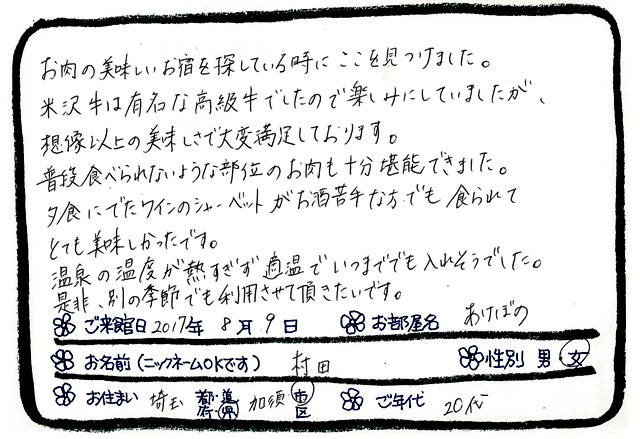 お肉の美味しいお宿を探している時にここを見つけました。
米沢牛は有名な高級牛でしたので楽しみにしていましたが、
想像以上の美味しさで大変満足しております。
普段食べられないような部位のお肉も十分堪能できました。
夕食にでたワインのシャーベットがお酒苦手な方でも食られて
とても美味しかったです。
温泉の温度が熱すぎず適温でいつまででも入れそうでした。
是非、別の季節でも利用させて頂きたいです。
ご来館日 2017年 8月 9日 お部屋名 あけぼの
お名前(ニックネームOKです) 村田 性別 男 女
お住まい 埼玉 都・道府・県 加須 市区 ご年代 20代